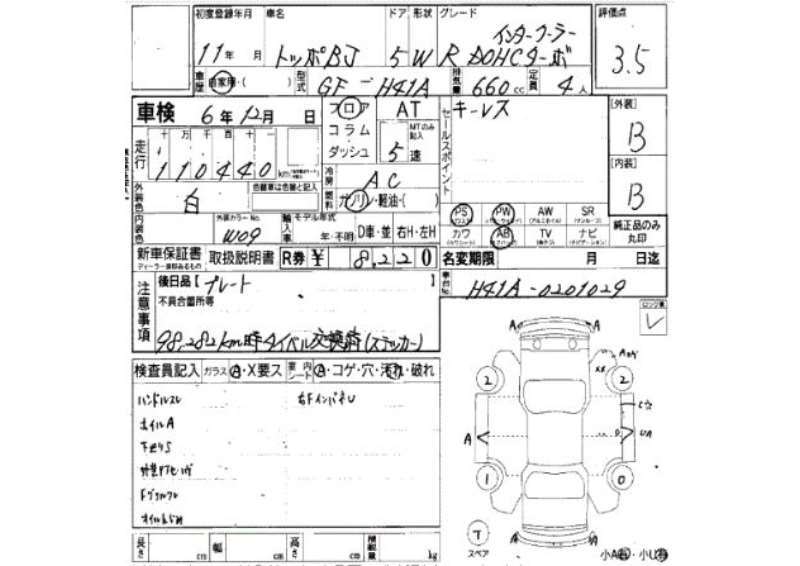 初度登録年月 車名 ドア 形状 グレード 評価点
11年 月 トッポBJ 5 W R インタークーラー DOHCターボ 3.5
車歴 自家用・( ) 型式 GF-H41A 排気量 660cc 定員 4人
車検 6年12月 日 フロア AT キーレス [外装]
コラム MTのみ記入 セールスポイント B
ダッシュ 5速
走行 十 万 千 百 十 一
110440 km 冷房 AC [内装]
外装色 白 色替車は色替と記入 燃料 ガソリン・軽油・( ) B
PS PW AW SR 純正品のみ丸印
内装色 外装カラーNo. W09 輸入車 モデル年式 年・不明 D車・並 右H・左H カワ AB TV ナビ
新車保証書 取扱説明書 R券 ¥ 8,220 名変期限 月 日迄
ディーラー捺印あるもの
注意事項 後日品【プレート 】 車台No. H41A-0201029
不具合箇所等
98,282km時タイベル交換済(ステッカー)
検査員記入 ガラス A・X要ス 室内シート A・コゲ・穴・汚れ・破れ
ハンドルスレ 右FインパネU
ホイルA
下廻りS
A A
2 2
A
1 0
T
スペア
小A・小U
長さ cm 幅 cm 高さ cm 積載量 kg